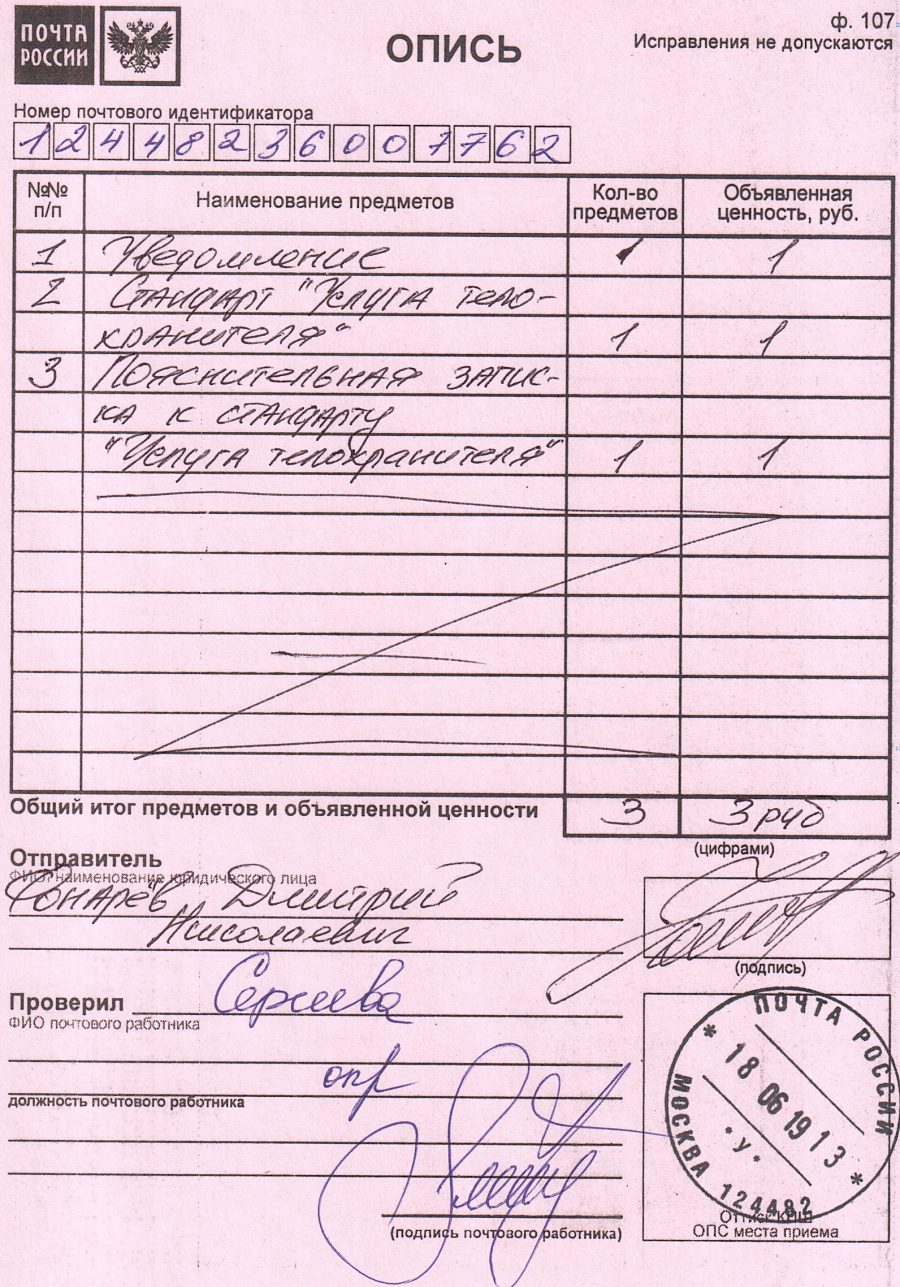 ПОЧТА
РОССИИ
ОПИСЬ
ф. 107
Исправления не допускаются
Номер почтового идентификатора
12448236007762
№№ п/п Наименование предметов Кол-во предметов Объявленная ценность, руб.
1 Уведомление 1 1
2 Стандарт "Услуга тело-
хранителя" 1 1
3 Пояснительная запис-
ка к стандарту
"Услуга телохранителя" 1 1
Общий итог предметов и объявленной ценности 3 3 руб
(цифрами)
Отправитель
ФИО, наименование юридического лица
Фонарёв Дмитрий
Николаевич
(подпись)
Проверил
ФИО почтового работника
опр
должность почтового работника
(подпись почтового работника)
ПОЧТА РОССИИ
18 06 19 13
У
МОСКВА 124482
Оттиск КПШ
ОПС места приема